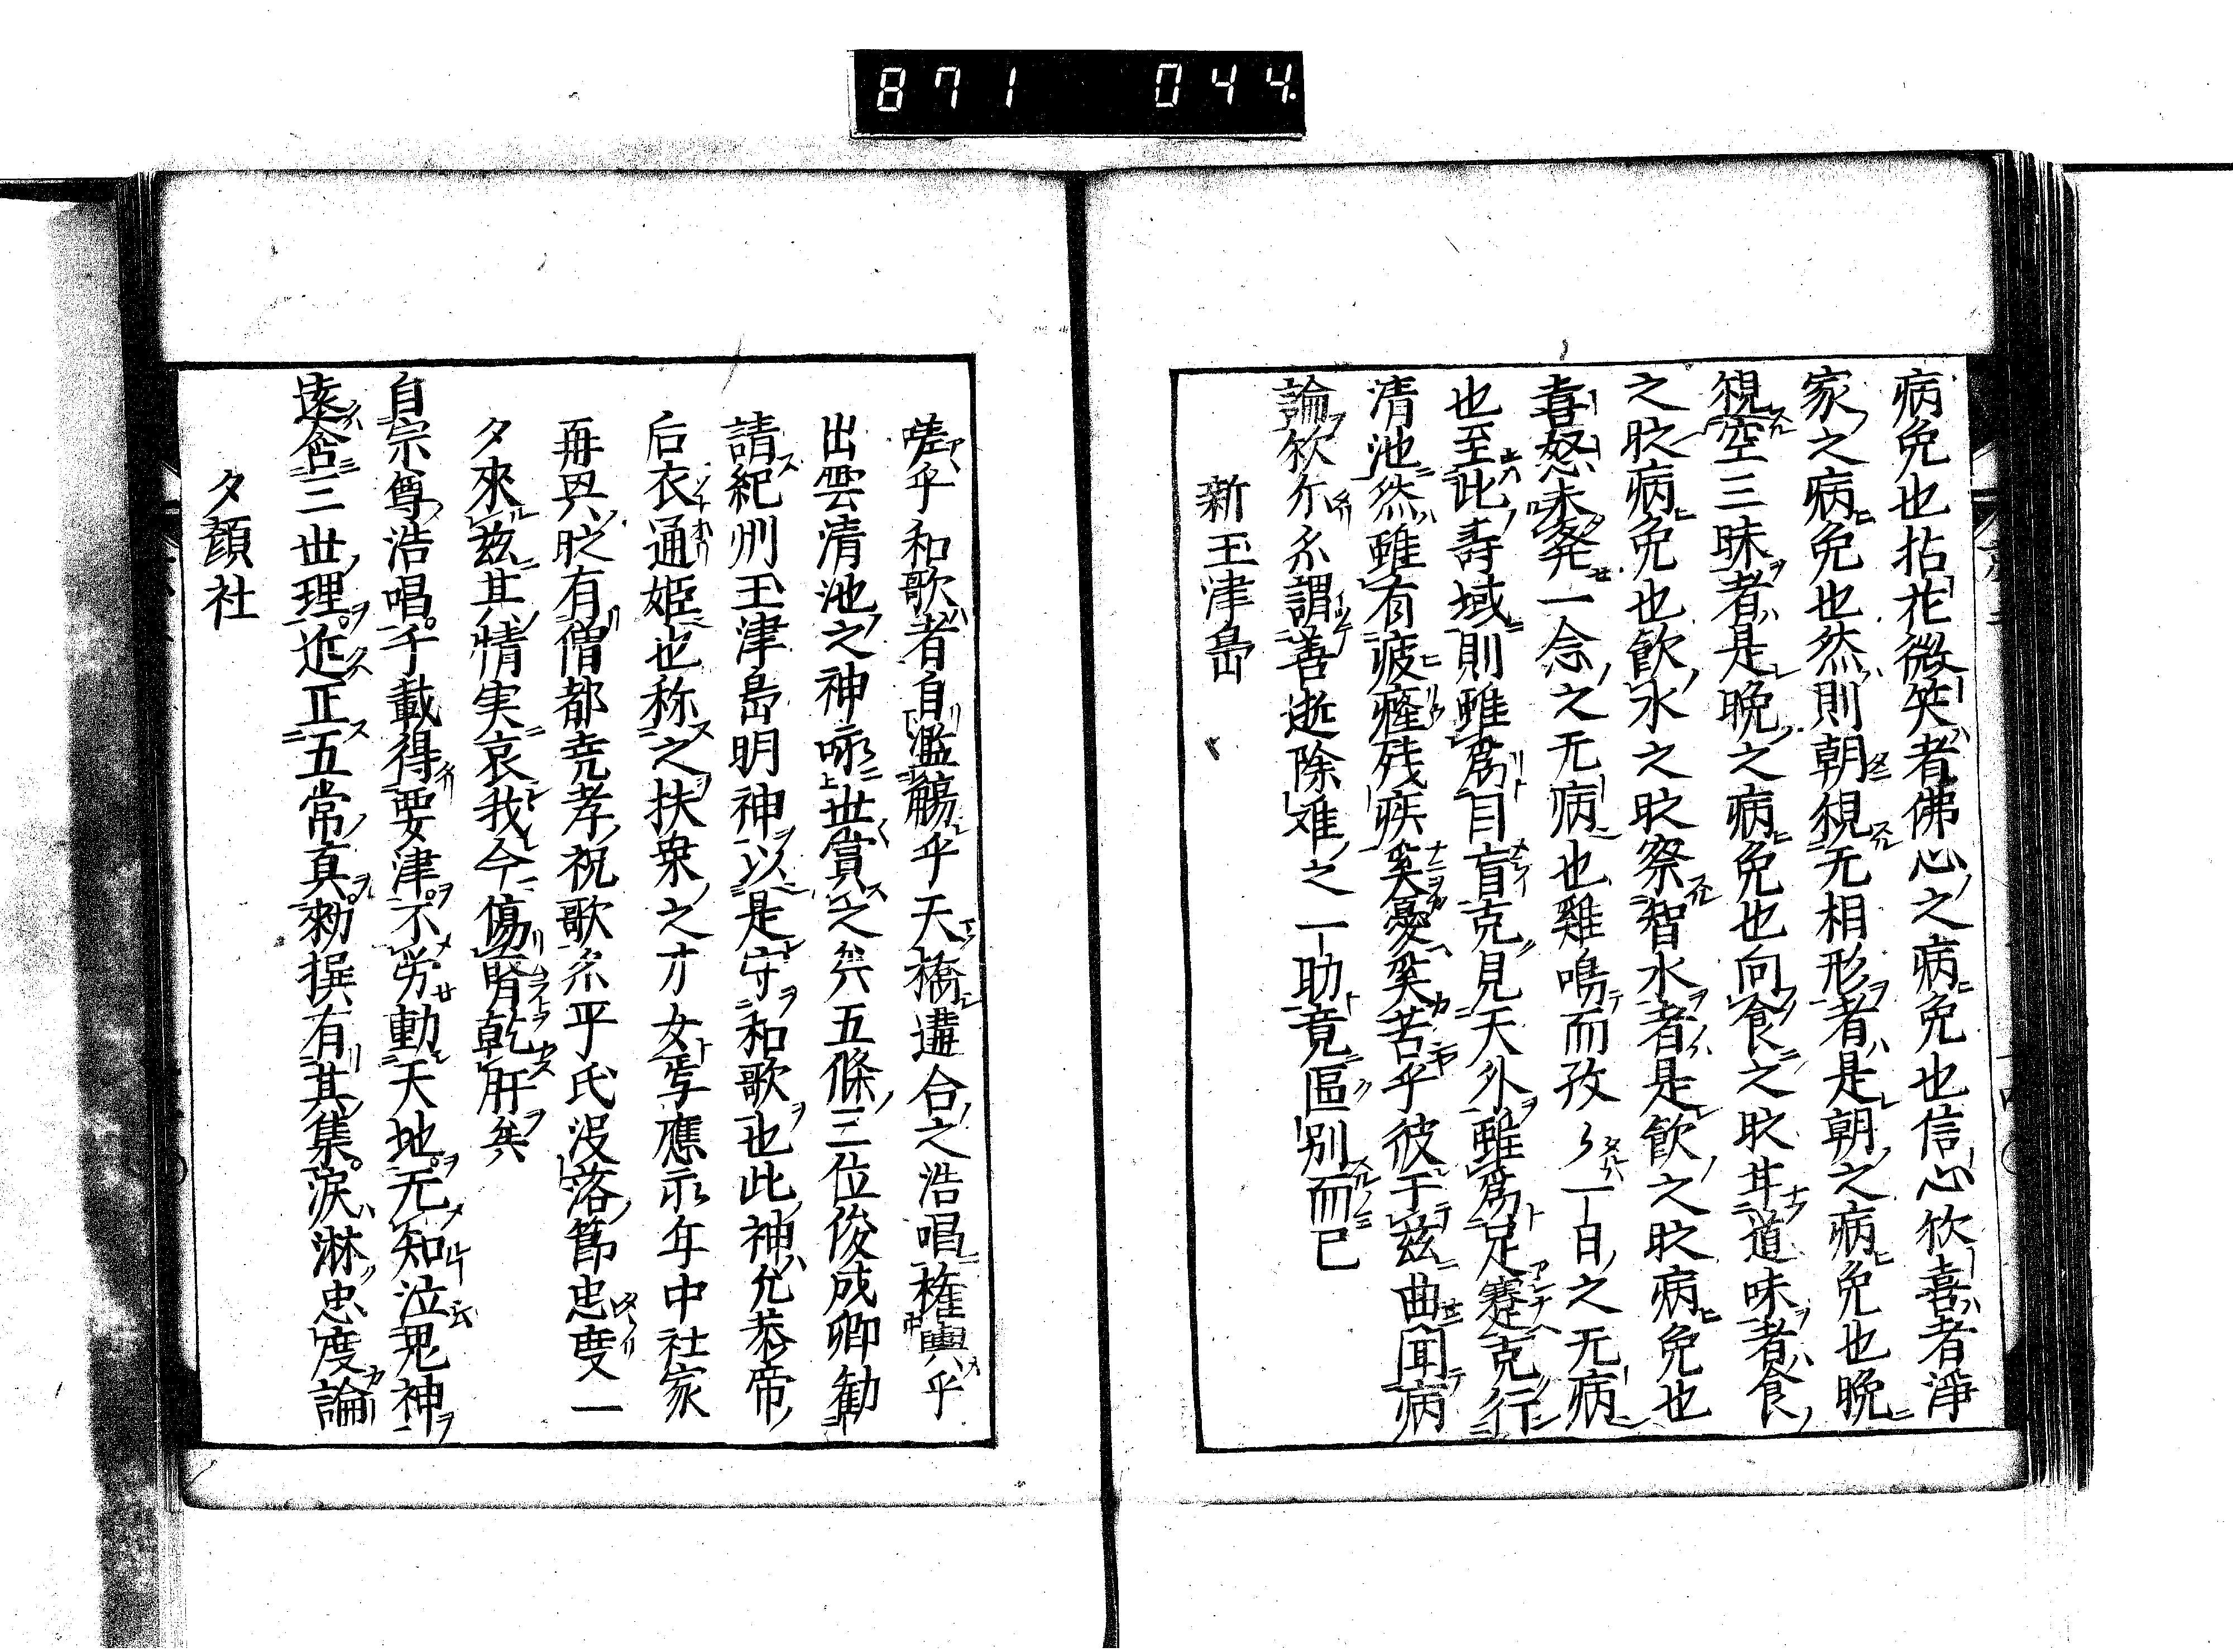 871 044
病免也拈花微笑者佛心之病免也信心欽喜者淨
家之病免也然則朝視无相形者是朝之病免也晩
視空三昧者是晩之病免也向食之时甘道味者食
之时病免也飲水之时察智水者是飲之时病免也
喜怒未発一念之无病也雞鳴而孜々一日之无病
也至此壽域則雖為目盲克見天外雖為足蹇克行
清池然雖有疲癃残疾奚憂奚苦乎彼于兹曲聞病
論欽尓尓謂善逝除难之一助竟區别而已
新玉津島
嗟乎和歌者自濫觴乎天橋遘合之浩唱権輿乎
出雲清池之神咏世賞之矣五條三位俊成卿勧
請紀州玉津島明神以是守和歌也此神允恭帝
后衣通姫也称之扶桒之才女焉應永年中社家
再興时有僧都尭孝祝歌尓平氏没落節忠度一
夕來兹其情実哀我今傷腎乾肝矣
自宗尊浩唱千載得要津不労動天地元知泣鬼神
遠含三世理近正五常真勅撰有其集淚淋忠度論
夕顔社